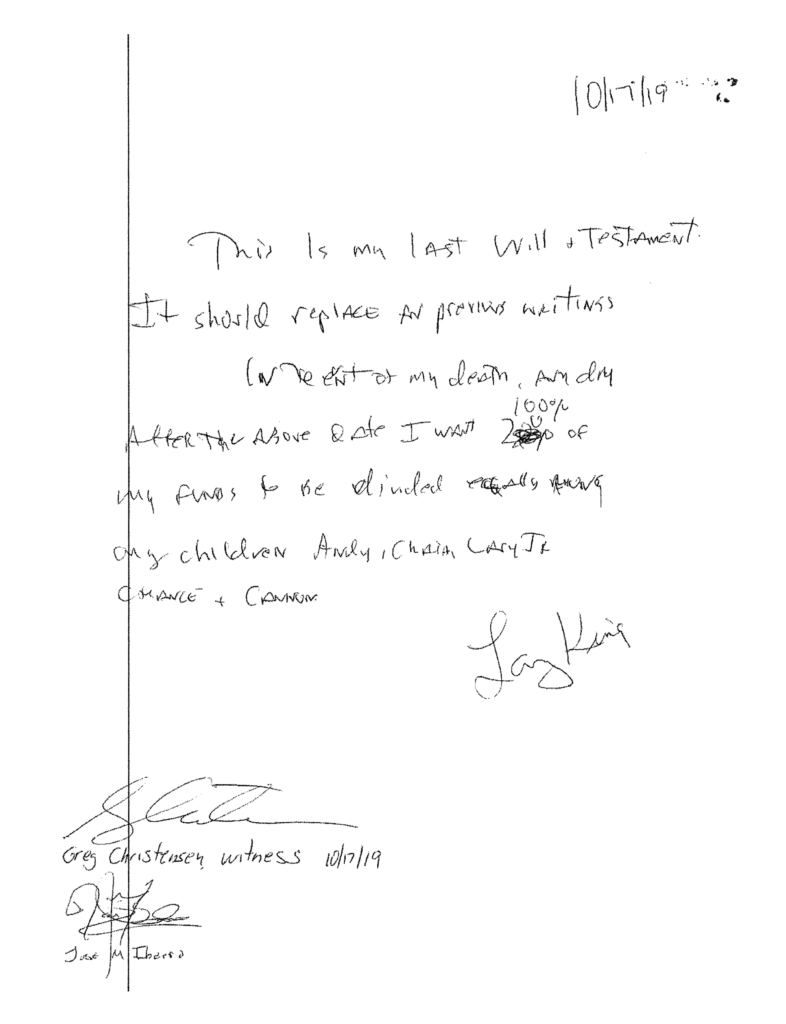 10/17/19
This Is my lAST Will + TeSTAMENT.
It should replACE All previous writings
In the event of my death, Any day
After the Above Date I want 100% of
my FUNDS to be divided equally Among
my children Andy, Chaia, Larry Jr
CHANCE + CANNON
Larry King
Greg Christensen, witness 10/17/19
Jose M Ibarra